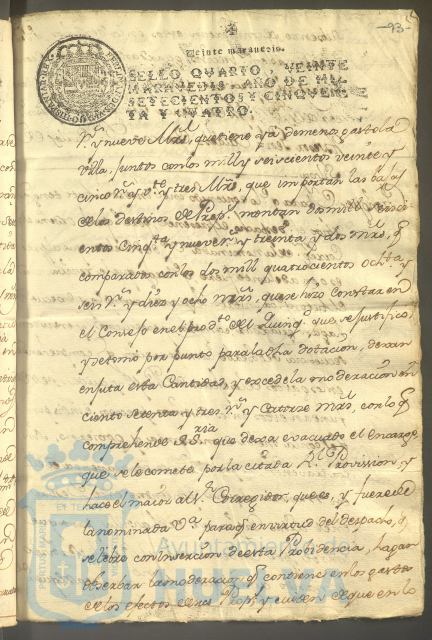 93
Veinte maravedis.
SELLO QVARTO, VEINTE
MARAVEDIS, AÑO DE MIL
SETECIENTOS Y CINQVEN-
TA Y QVATRO.
y nueve Mrs, que tiene ya de menos gasto la
Villa, juntos con los mill y seiscientos veinte y
cinco rs y vte y tres Mrs, que importan las
de los destinos de Prop. montan dos mil
entos cinqta y nueve rs y treinta y dos mrs, q
comparados con los dos mill quatrocientos ochta y
seis rs y diez y ocho mrs, que se hizo constar en
el Consejo en el de el Quinqo que se justificó,
y se tomó por punto para la dotacion, dexan
en su fuerza esta Cantidad, y excede la moderacion en
ciento setenta y tres rs y Catorze Mrs, con lo q
comprehende S.Sria que dexa evacuado el encargo
que se le comete por la citada Rl Provission, y
hace el maior al Sr Corregidor, que es, y fuere de
la nominada Va para q en virtud del despacho, q
se libre con insercion de esta Providencia, hagan
observar la moderazon q contiene en los gastos
de los efectos de sus Props y cuiden de que en lo
Ayuntamiento de
HUELVA